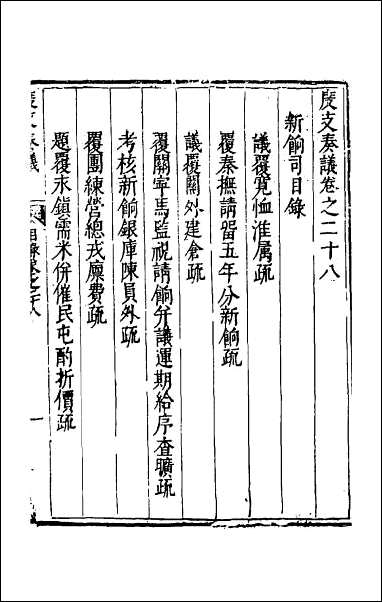 度支奏議卷之二十八
新餉司目錄
議覆寬恤淮屬疏
覆秦撫請留五年分新餉疏
議覆關外建倉疏
覆關寧馬監視請餉弁議運期給序查曠疏
考核新餉銀庫陳員外疏
覆團練營總戎廩費疏
題覆永鎮需米併催民屯酌折價疏
度支奏議